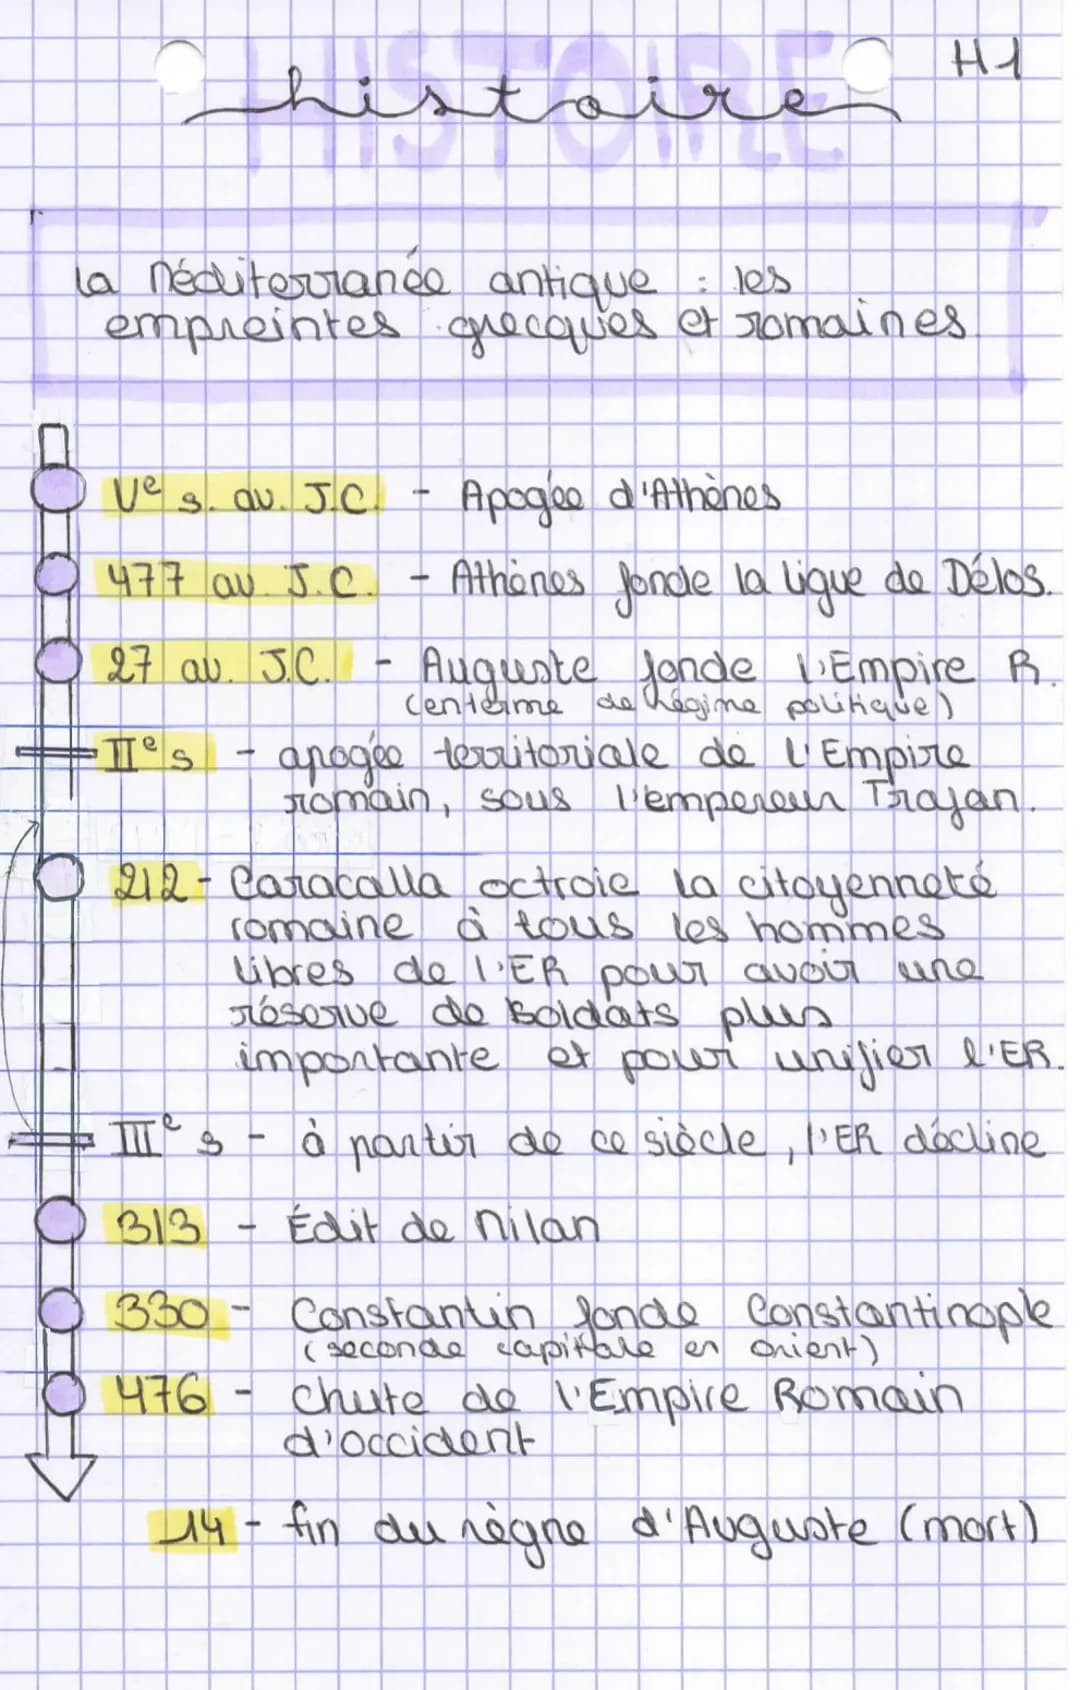 H1
HISTOIRE
histoire
La Méditerranée antique : les
empreintes grecques et romaines
Ve s. av. J.C. - Apogée d'Athènes
477 av. J.C. - Athènes fonde la ligue de Délos.
27 av. J.C. - Auguste fonde l'Empire R.
(en terme de régime politique)
IIe s - apogée territoriale de l'Empire
romain, sous l'empereur Trajan.
212 - Caracalla octroie la citoyenneté
romaine à tous les hommes
libres de l'ER pour avoir une
réserve de soldats plus
importante et pour unifier l'ER.
IIIe s - à partir de ce siècle, l'ER décline
313 - Édit de Milan
330 - Constantin fonde Constantinople
(seconde capitale en Orient)
476 - Chute de l'Empire Romain
d'occident
14 - fin du règne d'Auguste (mort)